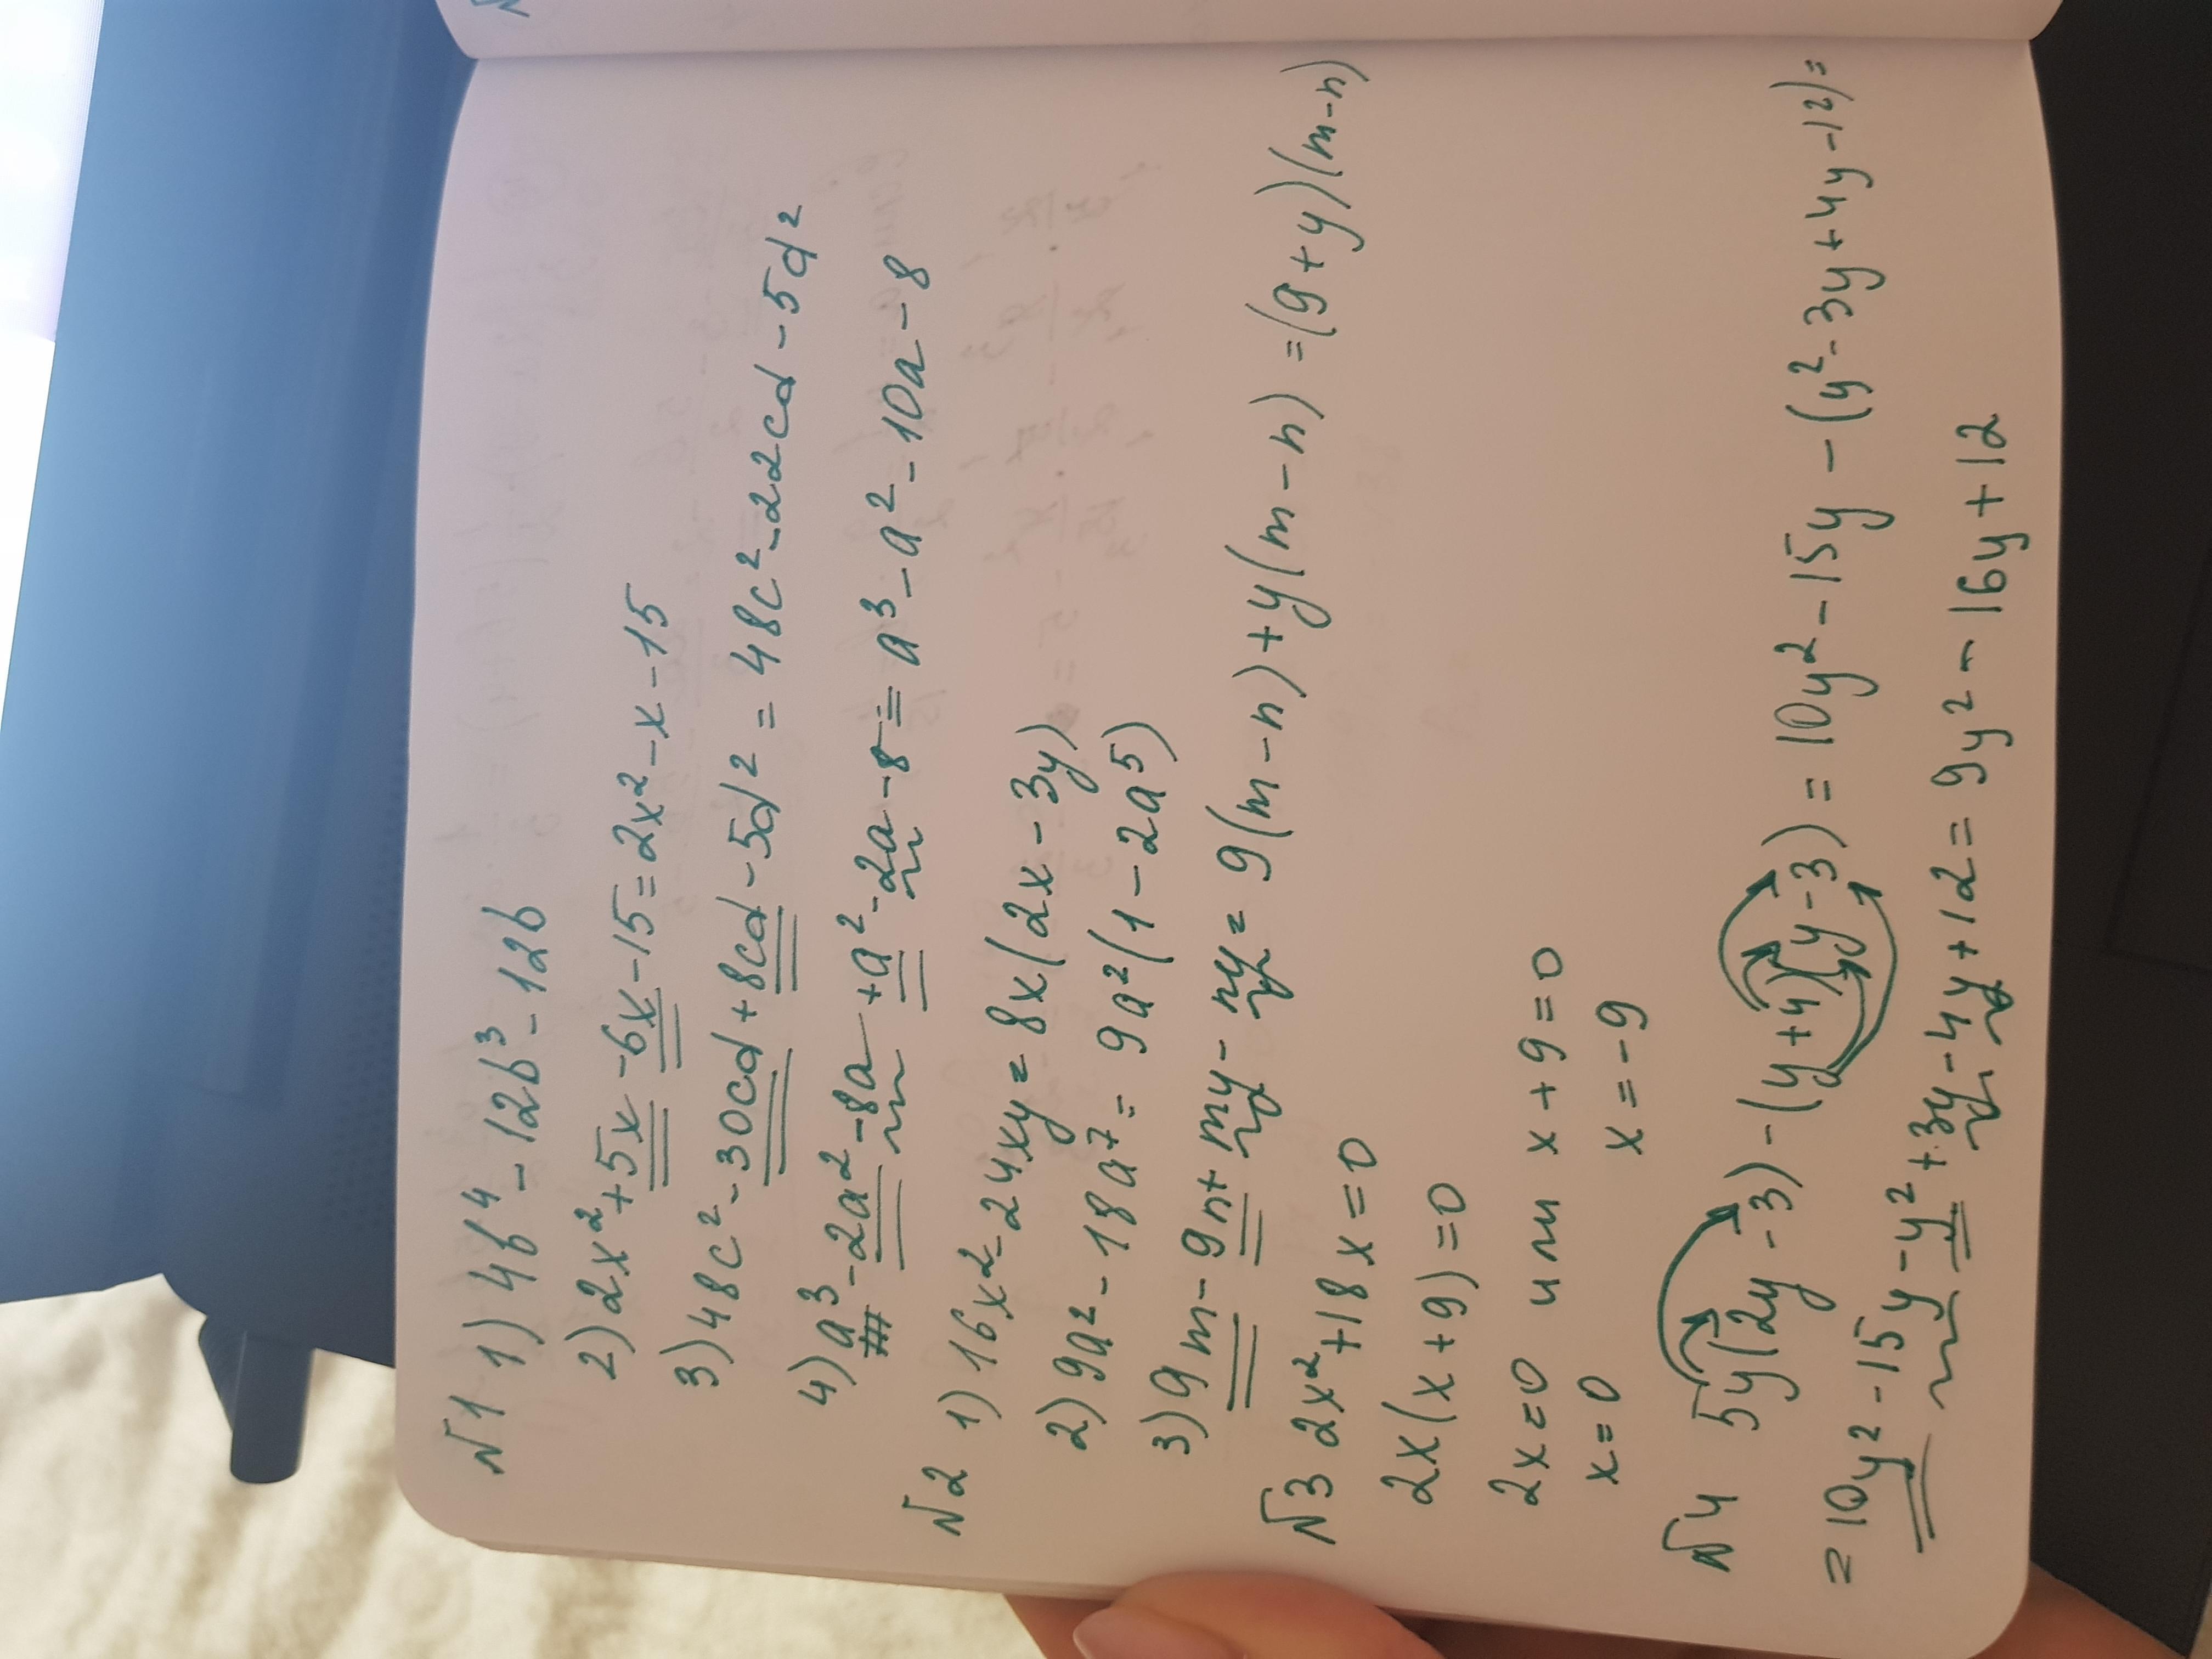 №1 1) 4b⁴ - 12b³ - 12b
2) 2x² + 5x - 6x - 15 = 2x² - x - 15
3) 48c² - 30cd + 8cd - 5d² = 48c² - 22cd - 5d²
4) a³ - 2a² - 8a + a² - 2a - 8 = a³ - a² - 10a - 8
№2 1) 16x² - 24xy = 8x(2x - 3y)
2) 9a² - 18a⁷ = 9a²(1 - 2a⁵)
3) 9m - 9n + my - ny = 9(m - n) + y(m - n) = (9 + y)(m - n)
№3 2x² + 18x = 0
2x(x + 9) = 0
2x = 0 или x + 9 = 0
x = 0 x = -9
№4 5y(2y - 3) - (y + 4)(y - 3) = 10y² - 15y - (y² - 3y + 4y - 12) =
= 10y² - 15y - y² + 3y - 4y + 12 = 9y² - 16y + 12